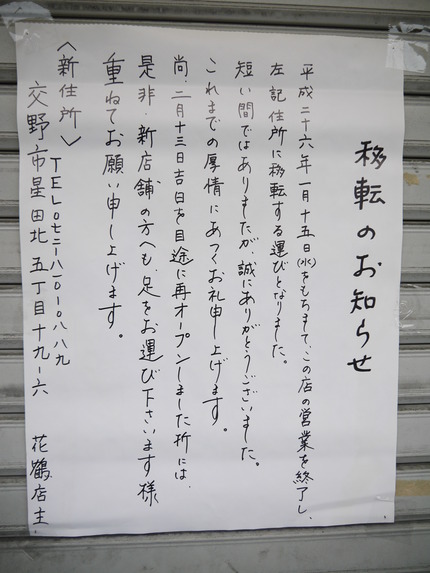 移転のお知らせ
平成二十六年一月十五日(水)をもちまして、この店の営業を終了し、
左記住所に移転する運びとなりました。
短い間ではありましたが、誠にありがとうございました。
これまでの厚情にあつくお礼申し上げます。
尚、二月十三日吉日を目途に再オープンしました折には、
是非、新店舗の方へも、足をお運び下さいます様
重ねてお願い申し上げます。
〈新住所〉TEL〇七二-八一〇-〇八八九
交野市星田北五丁目十九-六 花鶴店主